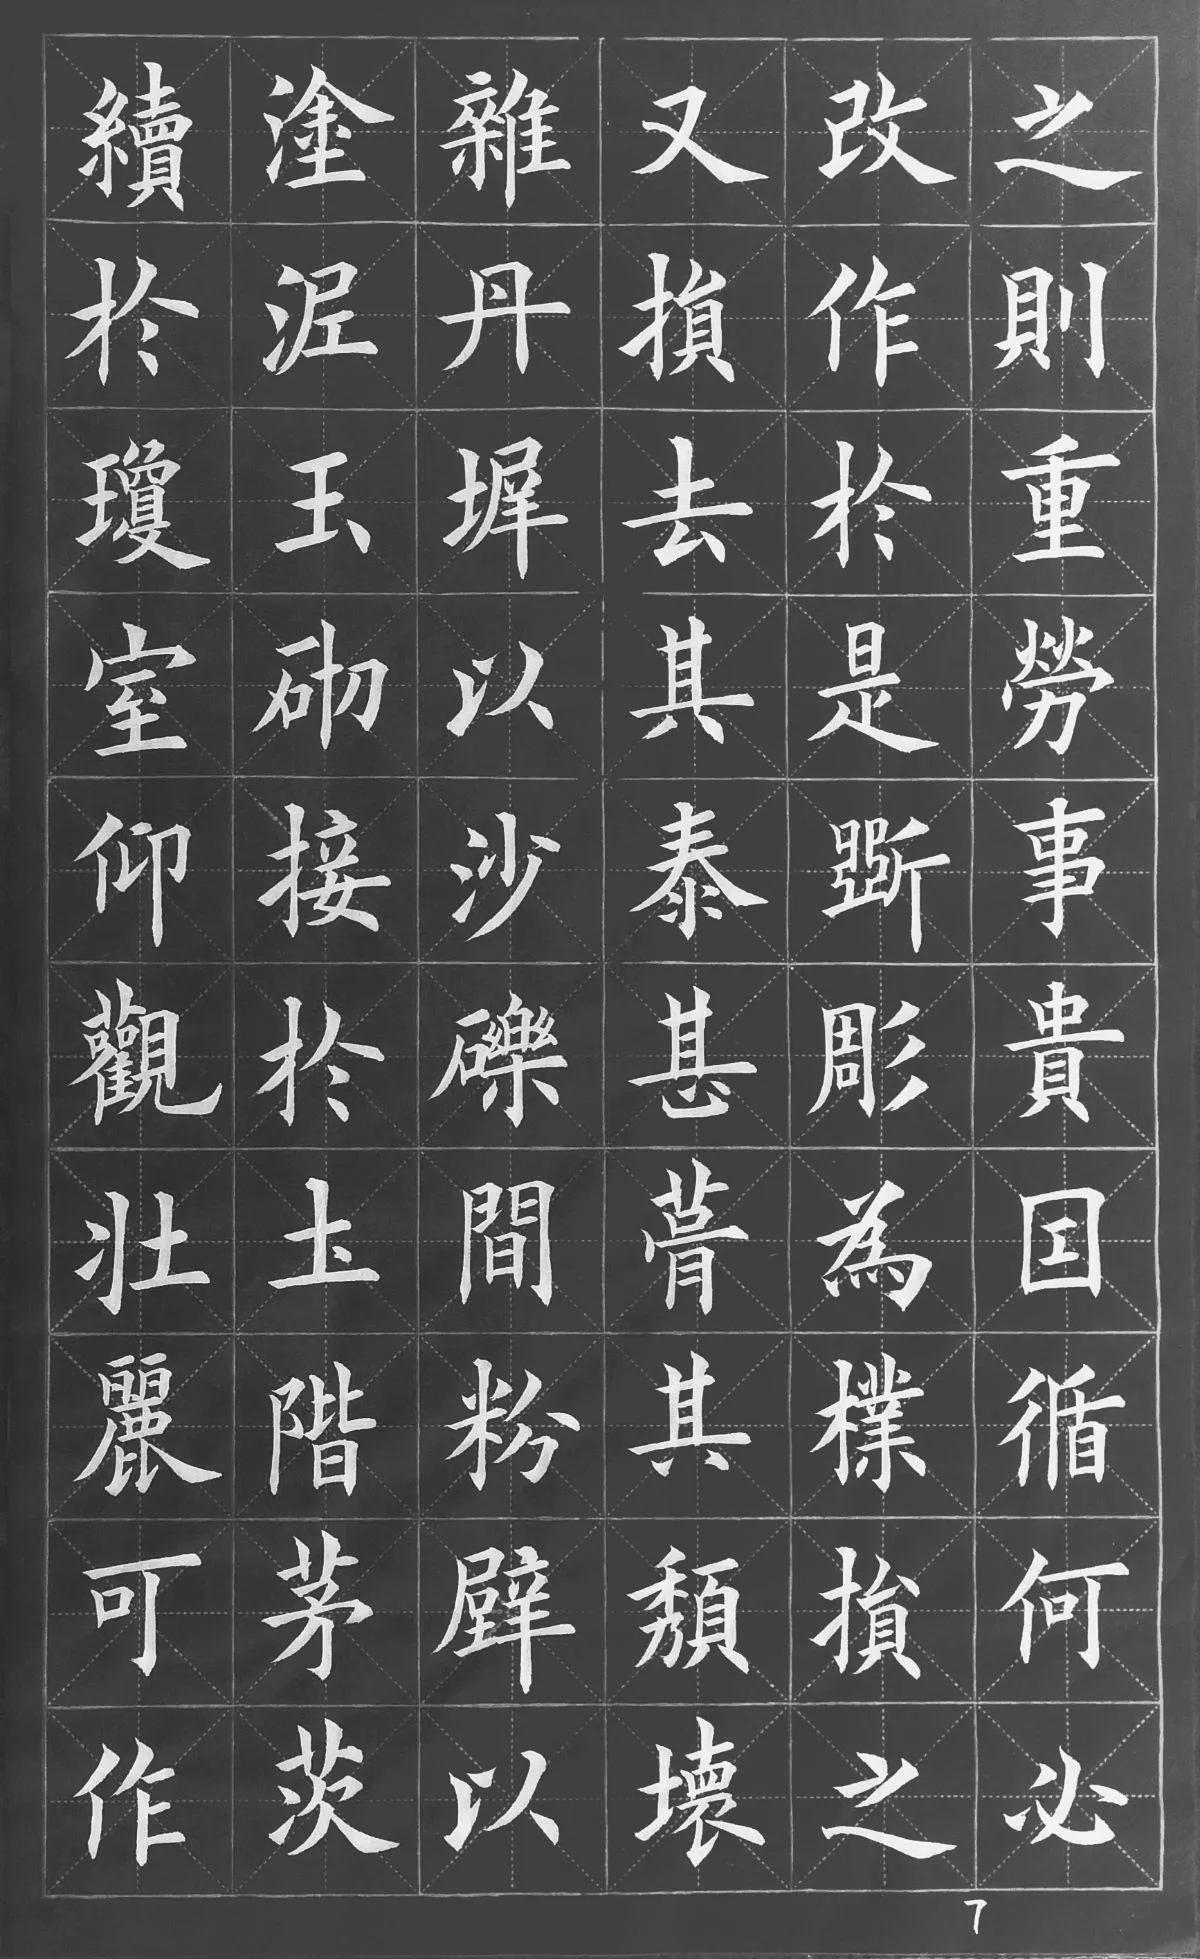 之則重勞事貴囯循何必
改作於是斲彫為樸損之
又損去其泰甚葺其頹壞
雜丹墀以沙礫間粉壁以
塗泥玉砌接於土階茅茨
續於瓊室仰觀壯麗可作
7